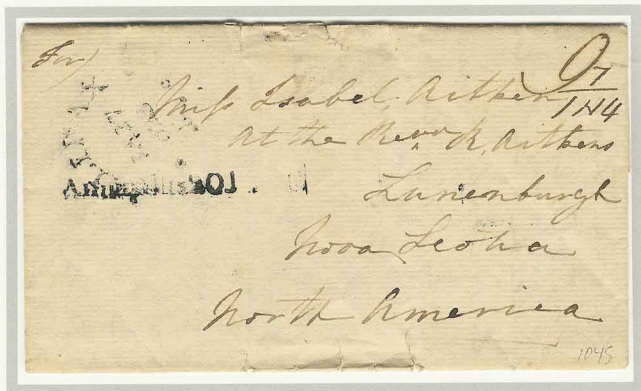 For
Miss Isabel Aitken
At the Revd R, Aitkens
Lunenburgh
Nova Scotia
North America
9
7
1N4
1045